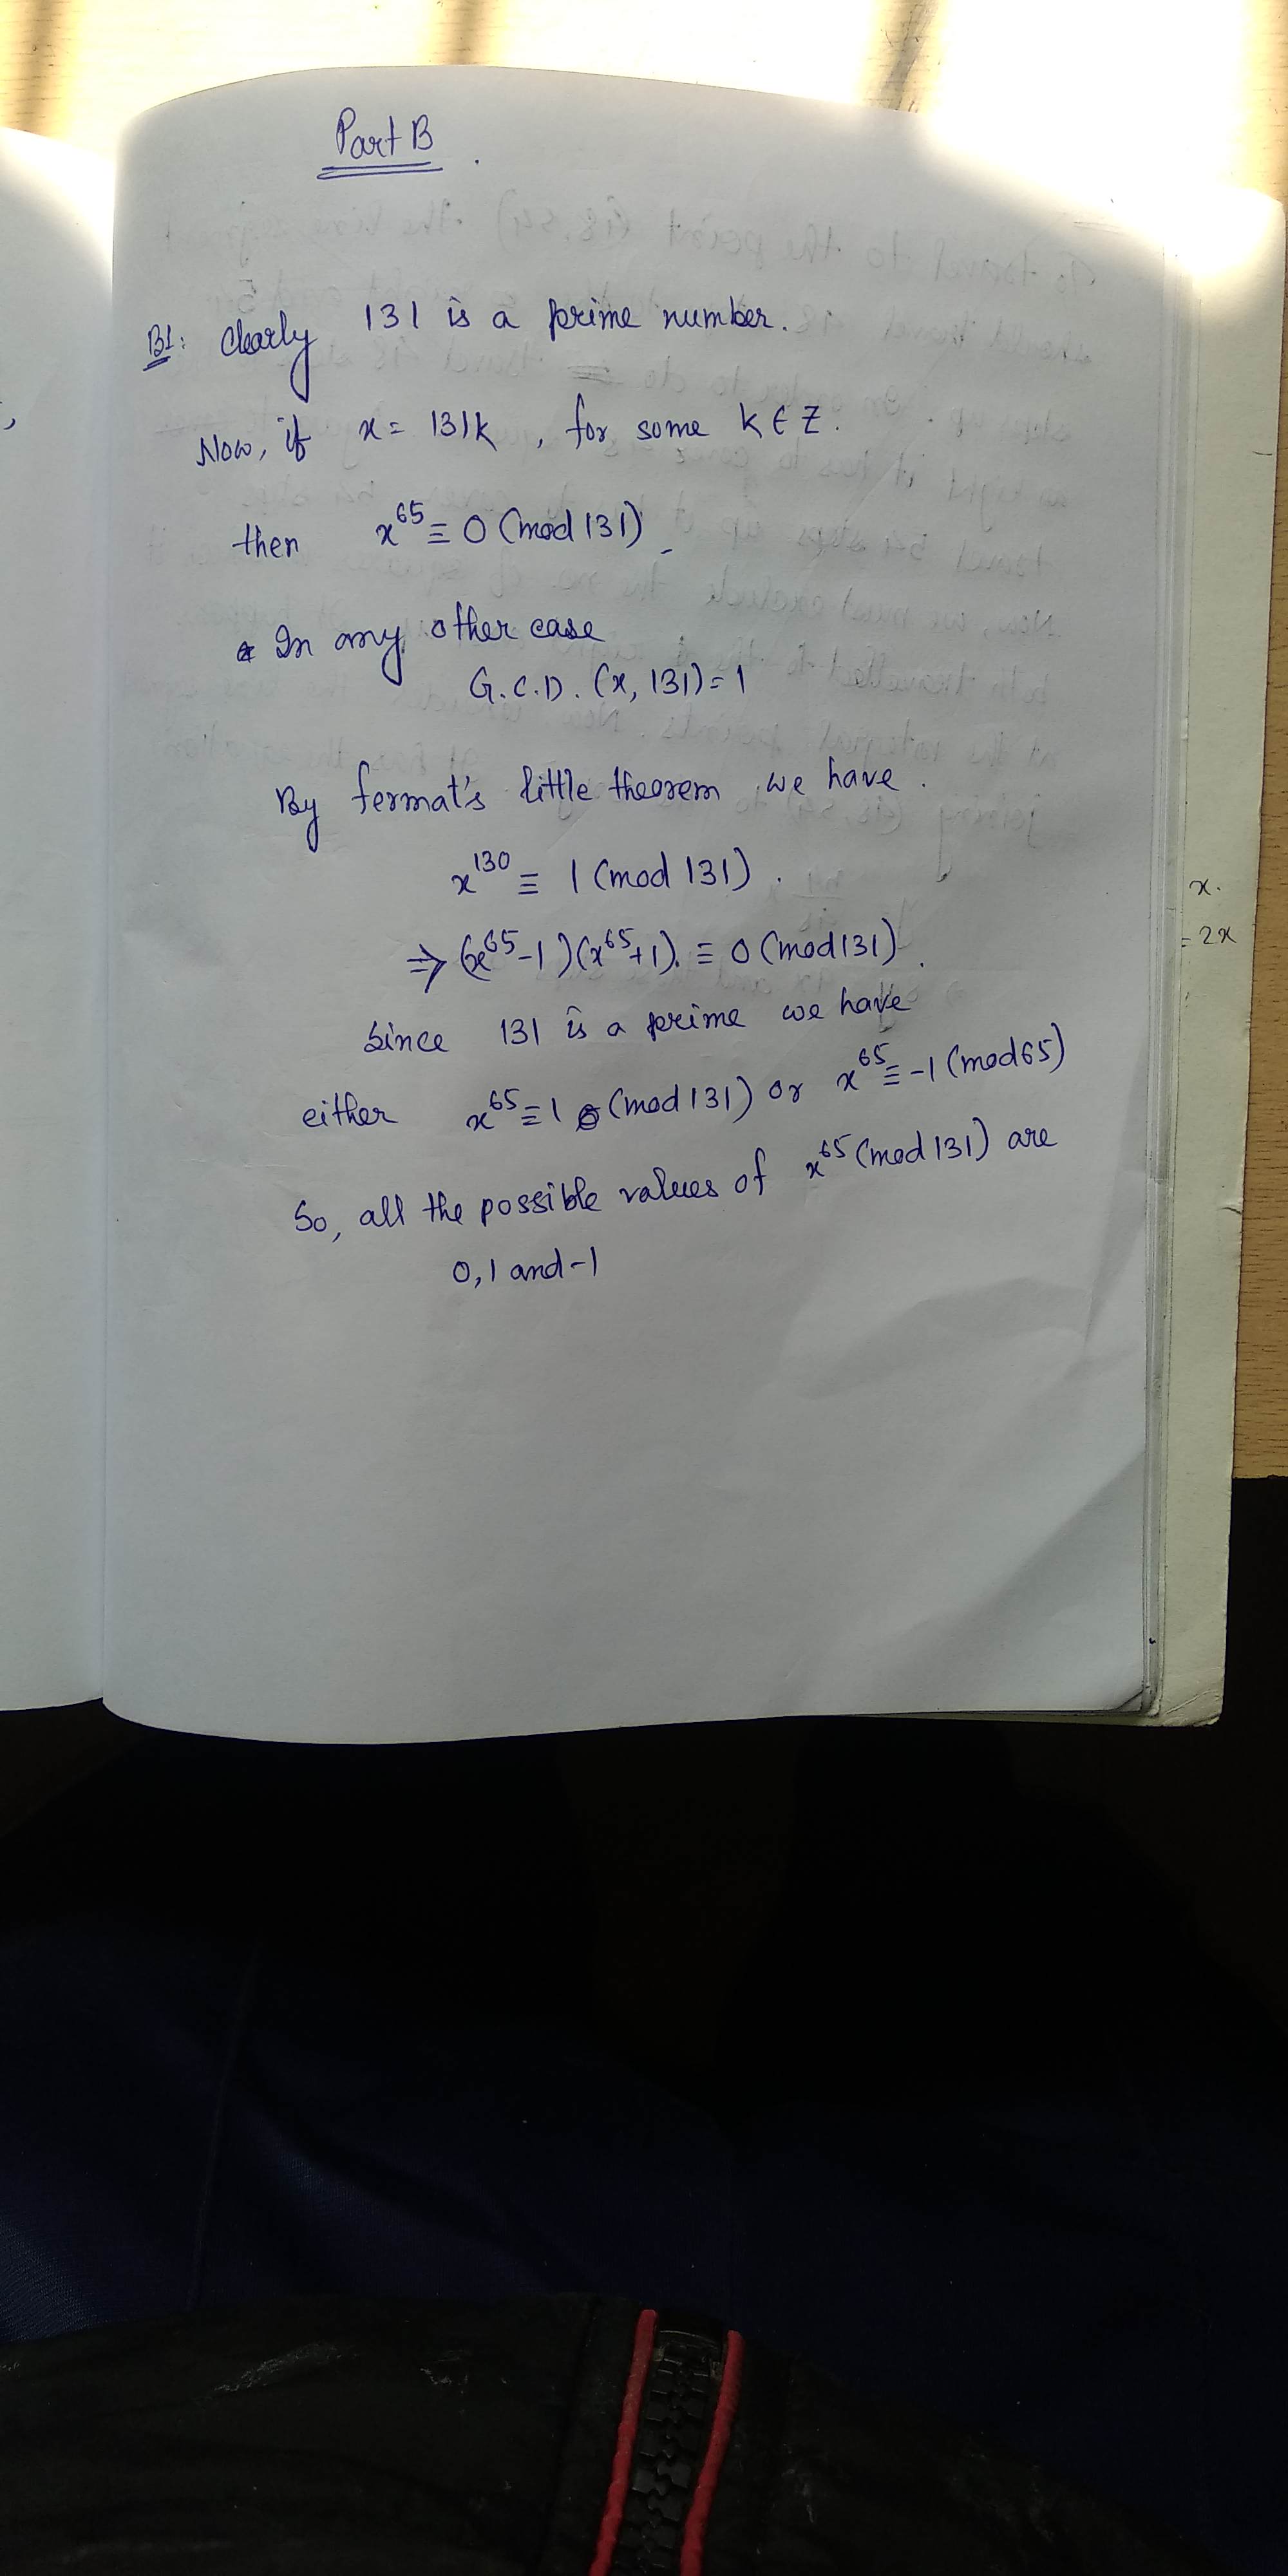 Part B
B1: Clearly 131 is a prime number.
Now, if x = 131k, for some k ∈ Z.
then x^65 ≡ 0 (mod 131)
In any other case
G.C.D. (x, 131) = 1
By fermat's little theorem we have.
x^130 ≡ 1 (mod 131).
⇒ (x^65 - 1)(x^65 + 1) ≡ 0 (mod 131).
Since 131 is a prime we have
either x^65 ≡ 1 (mod 131) or x^65 ≡ -1 (mod 65)
So, all the possible values of x^65 (mod 131) are
0, 1 and -1
x.
= 2x